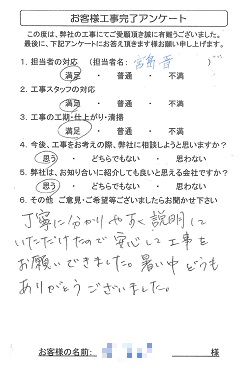 お客様工事完了アンケート
この度は、弊社の工事にてご愛顧頂き誠に有難うございました。
最後に、下記アンケートにお答え頂きます様お願い申し上げます。
1. 担当者の対応 (担当者名:
満足 ・ 普通 ・ 不満
2. 工事スタッフの対応
満足 ・ 普通 ・ 不満
3. 工事の工期・仕上がり・清掃
満足 ・ 普通 ・ 不満
4. 今後、工事をお考えの際、弊社に相談しようと思いますか?
思う ・ どちらでもない ・ 思わない
5. 弊社は、お知り合いに紹介しても良いと思える会社ですか?
思う ・ どちらでもない ・ 思わない
6. その他 ご意見・ご希望等ございましたらお聞かせ下さい
丁寧に分かりやすく説明して
いただけたので安心して工事を
お願いできました。暑い中どうも
ありがとうございました。
お客様の名前: 様